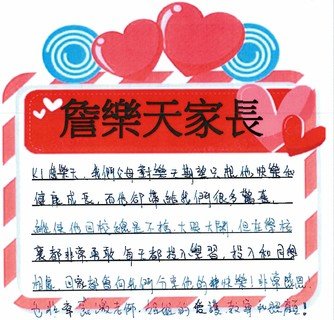 詹樂天家長
K1詹樂天,我們父母對樂天期望只想他快樂和
健康成長,而他卻帶給我們很多驚喜。
雖然他回校總是不捨大喊大鬧,但在學校
裏都非常勇敢,每天都投入學習,投入和同學
相處,回家都會向我們分享他的種快樂!非常感恩!
也非常感激老師,姐姐的愛護教導和照顧!